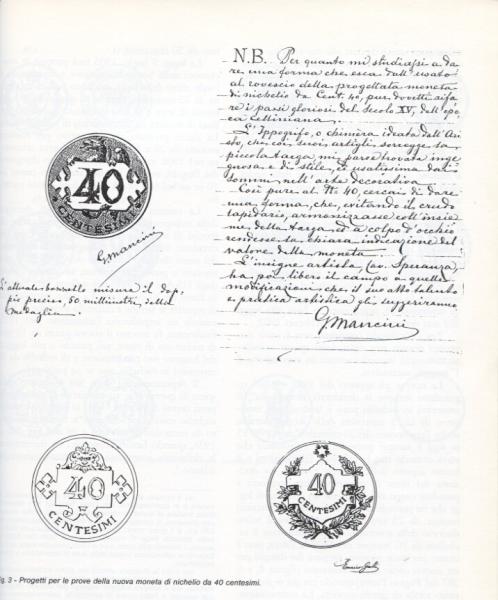 N.B. Per quanto mi studiassi a da
re una forma che esca dall'usato
al rovescio della progettata moneta
di nichelio da Cent. 40, pur dovetti rifa
re i passi gloriosi del Secolo XV, dell'epo
ca Celliniana.
L'Ippogrifo, o chimera ideata dall'Ario
sto, che coi suoi artigli, sorregge la
piccola targa mi parve trovata inge
gnosa e di stile, ed usatissima dai
sommi, nell'arte decorativa.
Così pure al N° 40, cercai di dare
una forma, che, evitando il crudo
lapidario, armonizzasse coll'insie
me della targa, ed a colpo d'occhio
rendesse la chiara indicazione del
valore della moneta.
L'insigne artista Cav. Speranza,
ha poi libero il campo a quelle
modificazioni che il suo alto talento
e pratica artistica gli suggeriranno
G. Mancini
40
CENTESIMI
G. Mancini
L'attuale bozzetto misura il dop
pio preciso, 50 millimetri della
medaglia.
40
CENTESIMI
40
CENTESIMI
g. 3 - Progetti per le prove della nuova moneta di nichelio da 40 centesimi.